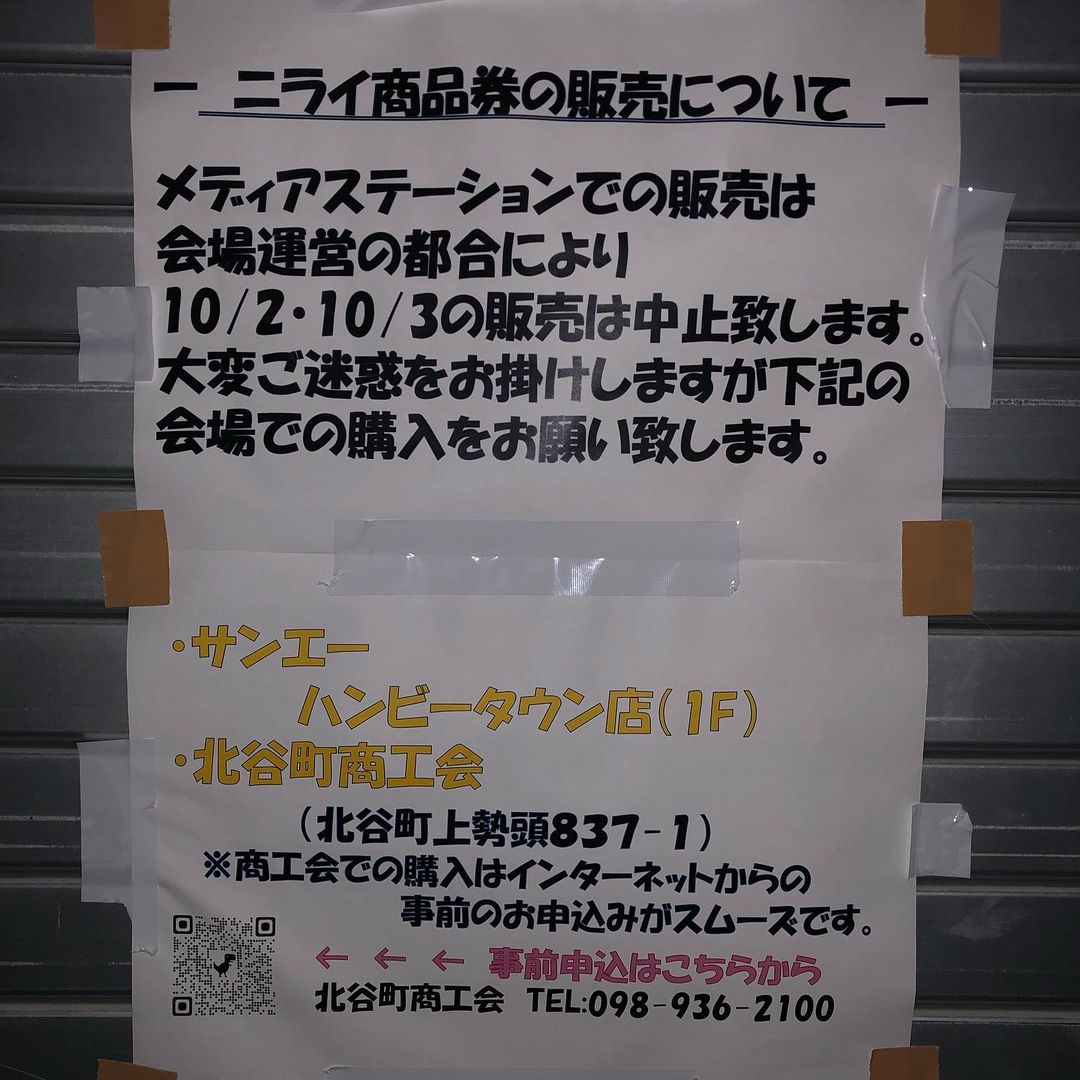 ー ニライ商品券の販売について ー
メディアステーションでの販売は
会場運営の都合により
10/2・10/3の販売は中止致します。
大変ご迷惑をお掛けしますが下記の
会場での購入をお願い致します。
・サンエー
ハンビータウン店(1F)
・北谷町商工会
(北谷町上勢頭837-1)
※商工会での購入はインターネットからの
事前のお申込みがスムーズです。
← ← ← 事前申込はこちらから
北谷町商工会 TEL:098-936-2100